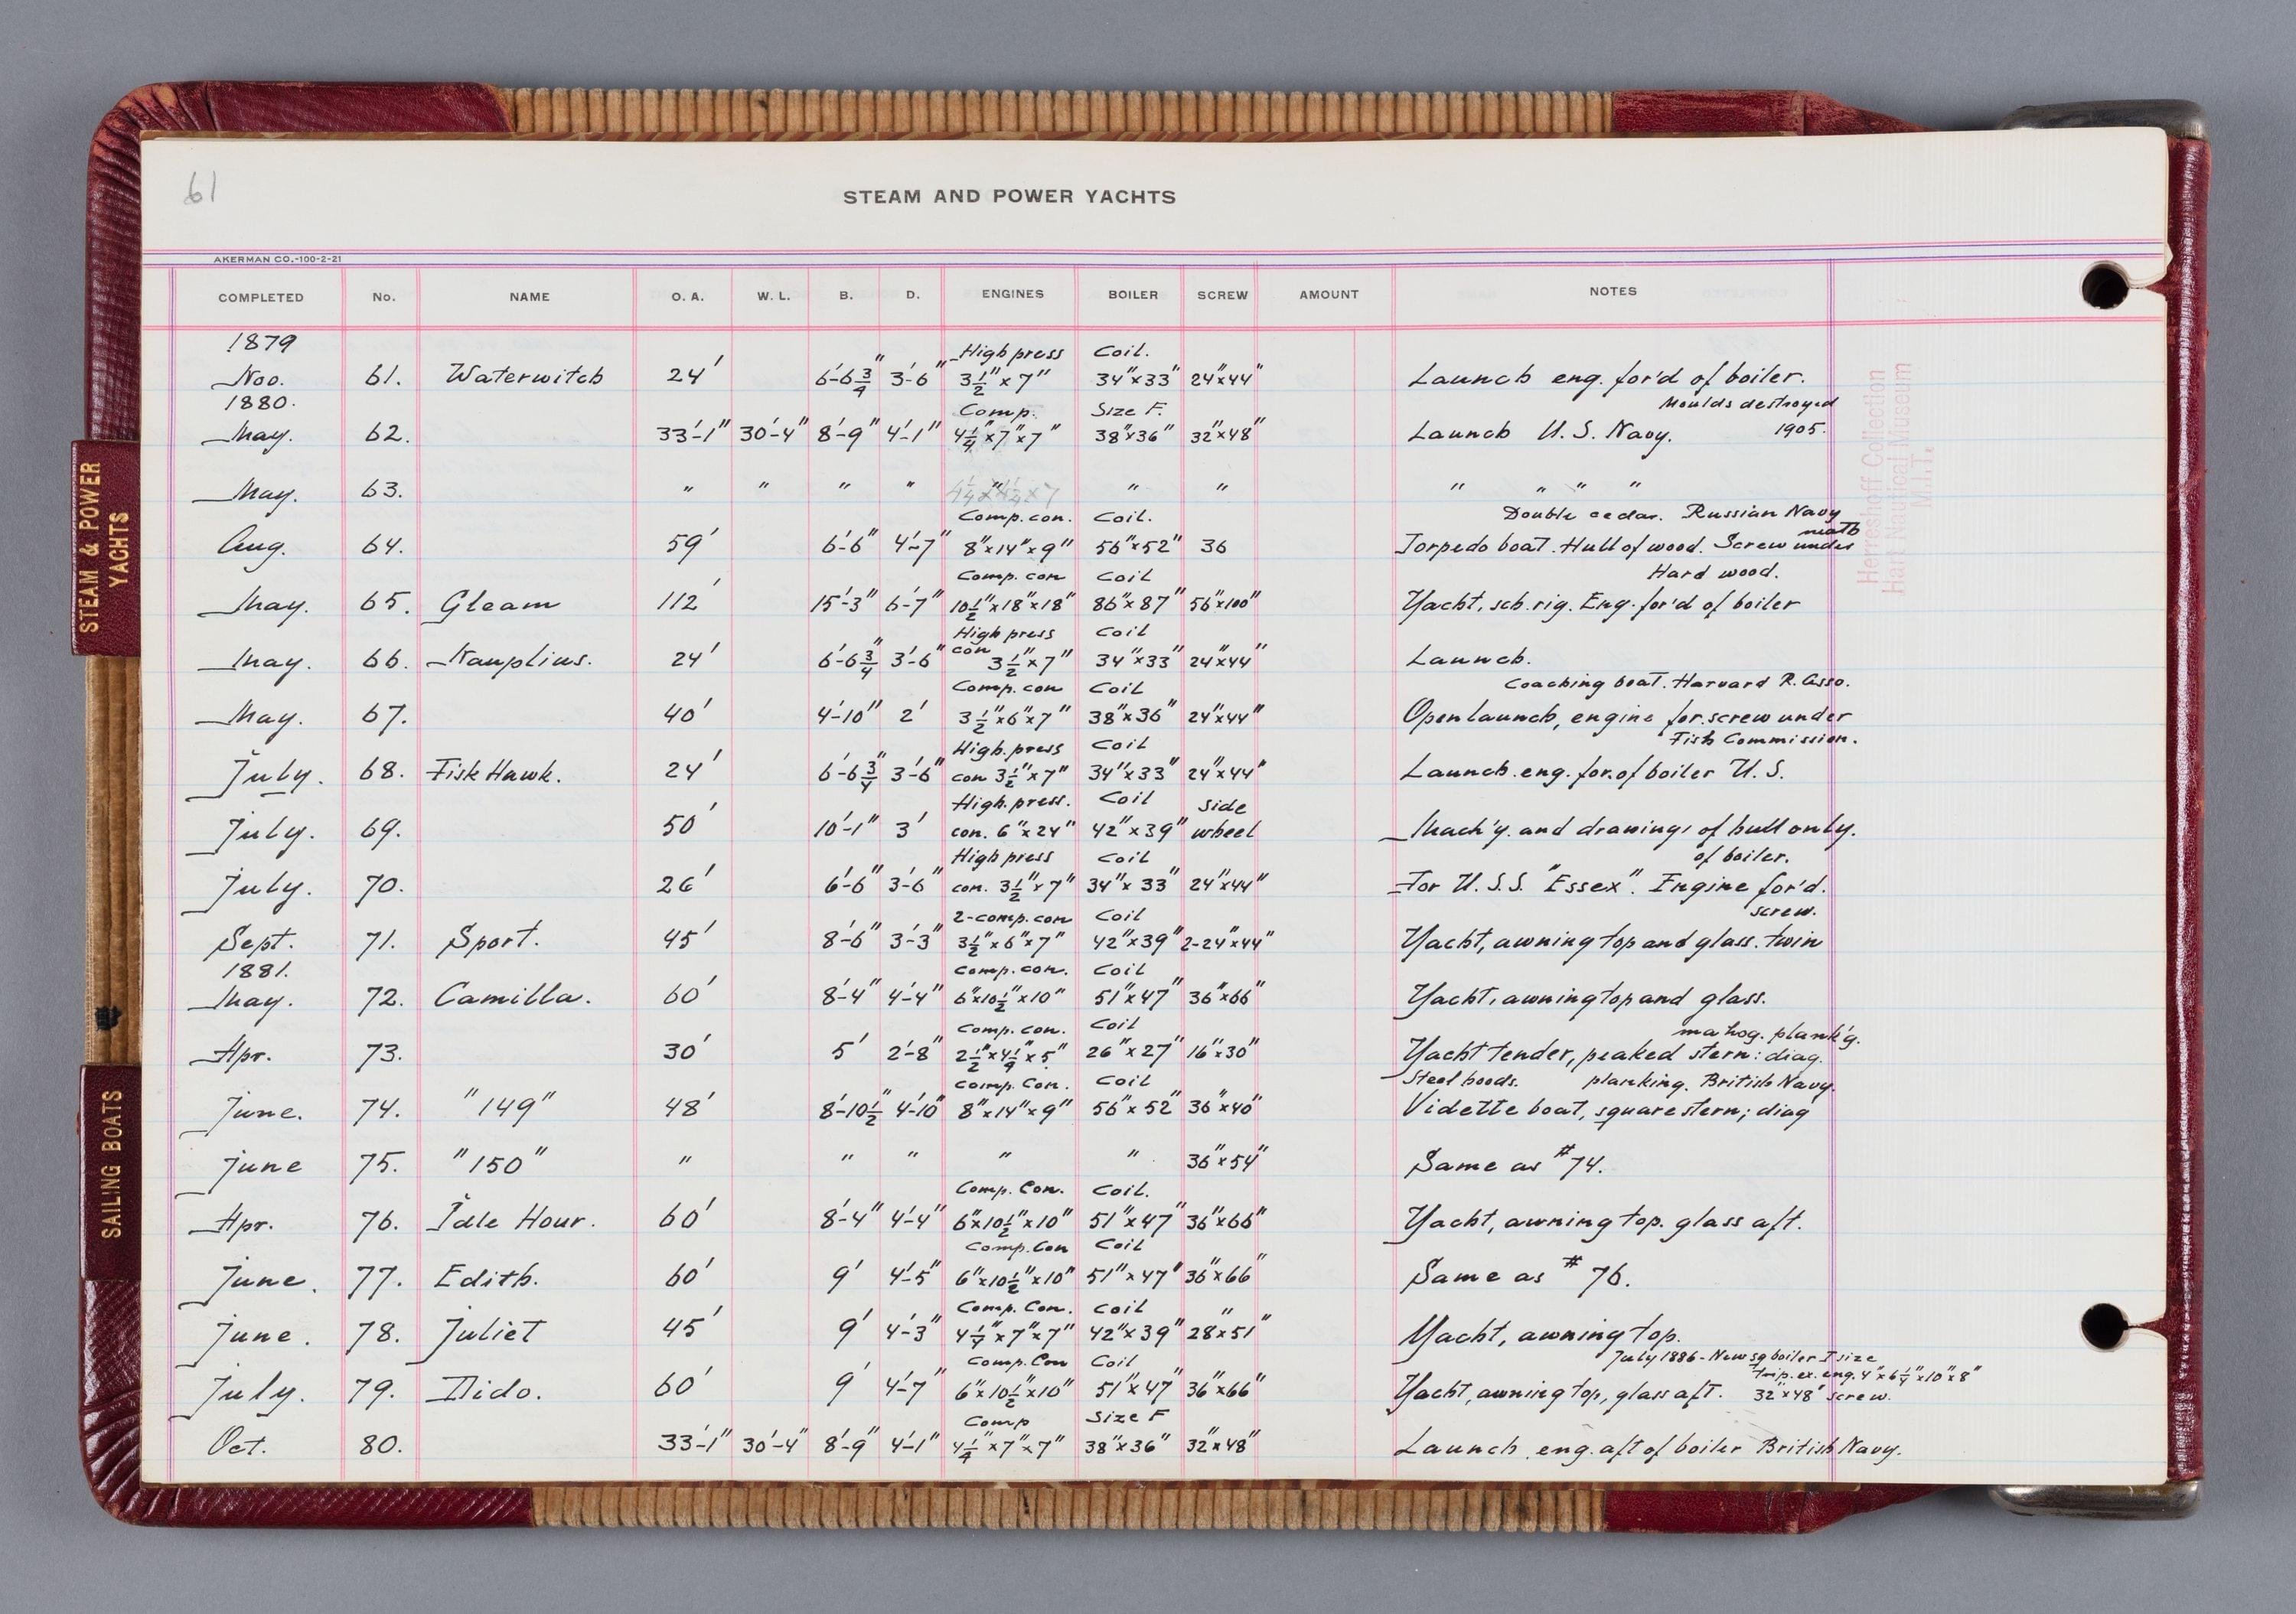 61
STEAM AND POWER YACHTS
AKERMAN CO.-100-2-21
COMPLETED No. NAME O. A. W. L. B. D. ENGINES BOILER SCREW AMOUNT NOTES
1879 High press Coil.
Nov. 61. Waterwitch 24' 6'-6 3/4" 3'-6" 3 1/2" x 7" 34"x33" 24"x44" Launch eng. for'd of boiler.
1880. Comp. Size F. Moulds destroyed
May. 62. 33'-1" 30'-4" 8'-9" 4'-1" 4 1/4"x7"x7" 38"x36" 32"x48" Launch U. S. Navy. 1905.
May. 63. " " " " " " " " " " "
Comp. con. Coil. Double cedar. Russian Navy
Aug. 64. 59' 6'-6" 4'-7" 8"x14"x9" 56"x52" 36 Torpedo boat. Hull of wood. Screw underneath
Comp. con Coil Hard wood.
May. 65. Gleam 112' 15'-3" 6'-7" 10 1/2"x18"x18" 86"x87" 56"x100" Yacht, sch. rig. Eng. for'd of boiler
High press Coil
May. 66. Nauplius. 24' 6'-6 3/4" 3'-6" con 3 1/2"x7" 34"x33" 24"x44" Launch.
Comp. con Coil Coaching boat. Harvard R. Asso.
May. 67. 40' 4'-10" 2' 3 1/2"x6"x7" 38"x36" 24"x44" Open launch, engine for. screw under
High. press Coil Fish Commission.
July. 68. Fish Hawk. 24' 6'-6 3/4" 3'-6" con 3 1/2"x7" 34"x33" 24"x44" Launch. eng. for. of boiler U. S.
High. press. Coil Side
July. 69. 50' 10'-1" 3' con. 6"x24" 42"x39" wheel Mach'y. and drawings of hull only.
High press Coil of boiler.
July. 70. 26' 6'-6" 3'-6" con. 3 1/2"x7" 34"x 33" 24"x44" For U. S. S. "Essex". Engine for'd.
2-comp. con Coil screw.
Sept. 71. Sport. 45' 8'-6" 3'-3" 3 1/2"x6"x7" 42"x39" 2-24"x44" Yacht, awning top and glass. twin
1881. Comp. con. Coil
May. 72. Camilla. 60' 8'-4" 4'-4" 6"x10 1/2"x10" 51"x47" 36"x66" Yacht, awning top and glass.
Comp. con. Coil mahog. plank'g.
Apr. 73. 30' 5' 2'-8" 2 1/2"x4 1/4"x5" 26"x27" 16"x30" Yacht tender, peaked stern: diag.
Comp. Con. Coil Steel hoods. planking. British Navy.
June. 74. "149" 48' 8'-10 1/2" 4'-10" 8"x14"x9" 56"x52" 36"x40" Vidette boat, square stern; diag
June 75. "150" " " " " " 36"x54" Same as #74.
Comp. Con. Coil.
Apr. 76. Idle Hour. 60' 8'-4" 4'-4" 6"x10 1/2"x10" 51"x47" 36"x66" Yacht, awning top. glass aft.
Comp. Con Coil
June. 77. Edith. 60' 9' 4'-5" 6"x10 1/2"x10" 51"x47" 36"x66" Same as # 76.
Comp. Con. Coil
June. 78. Juliet 45' 9' 4'-3" 4 1/4"x7"x7" 42"x39" 28"x51" Yacht, awning top.
Comp. Con Coil July 1886 - New sq boiler I size
trip. ex. eng. 4"x6 1/4"x10"x8"
July. 79. Dido. 60' 9' 4'-7" 6"x10 1/2"x10" 51"x47" 36"x66" Yacht, awning top, glass aft. 32"x48" screw.
Comp Size F
Oct. 80. 33'-1" 30'-4" 8'-9" 4'-1" 4 1/4"x7"x7" 38"x36" 32"x48" Launch eng. aft of boiler British Navy.
Herreshoff Collection
Hart Nautical Museum
M.I.T.
STEAM & POWER
YACHTS
SAILING BOATS